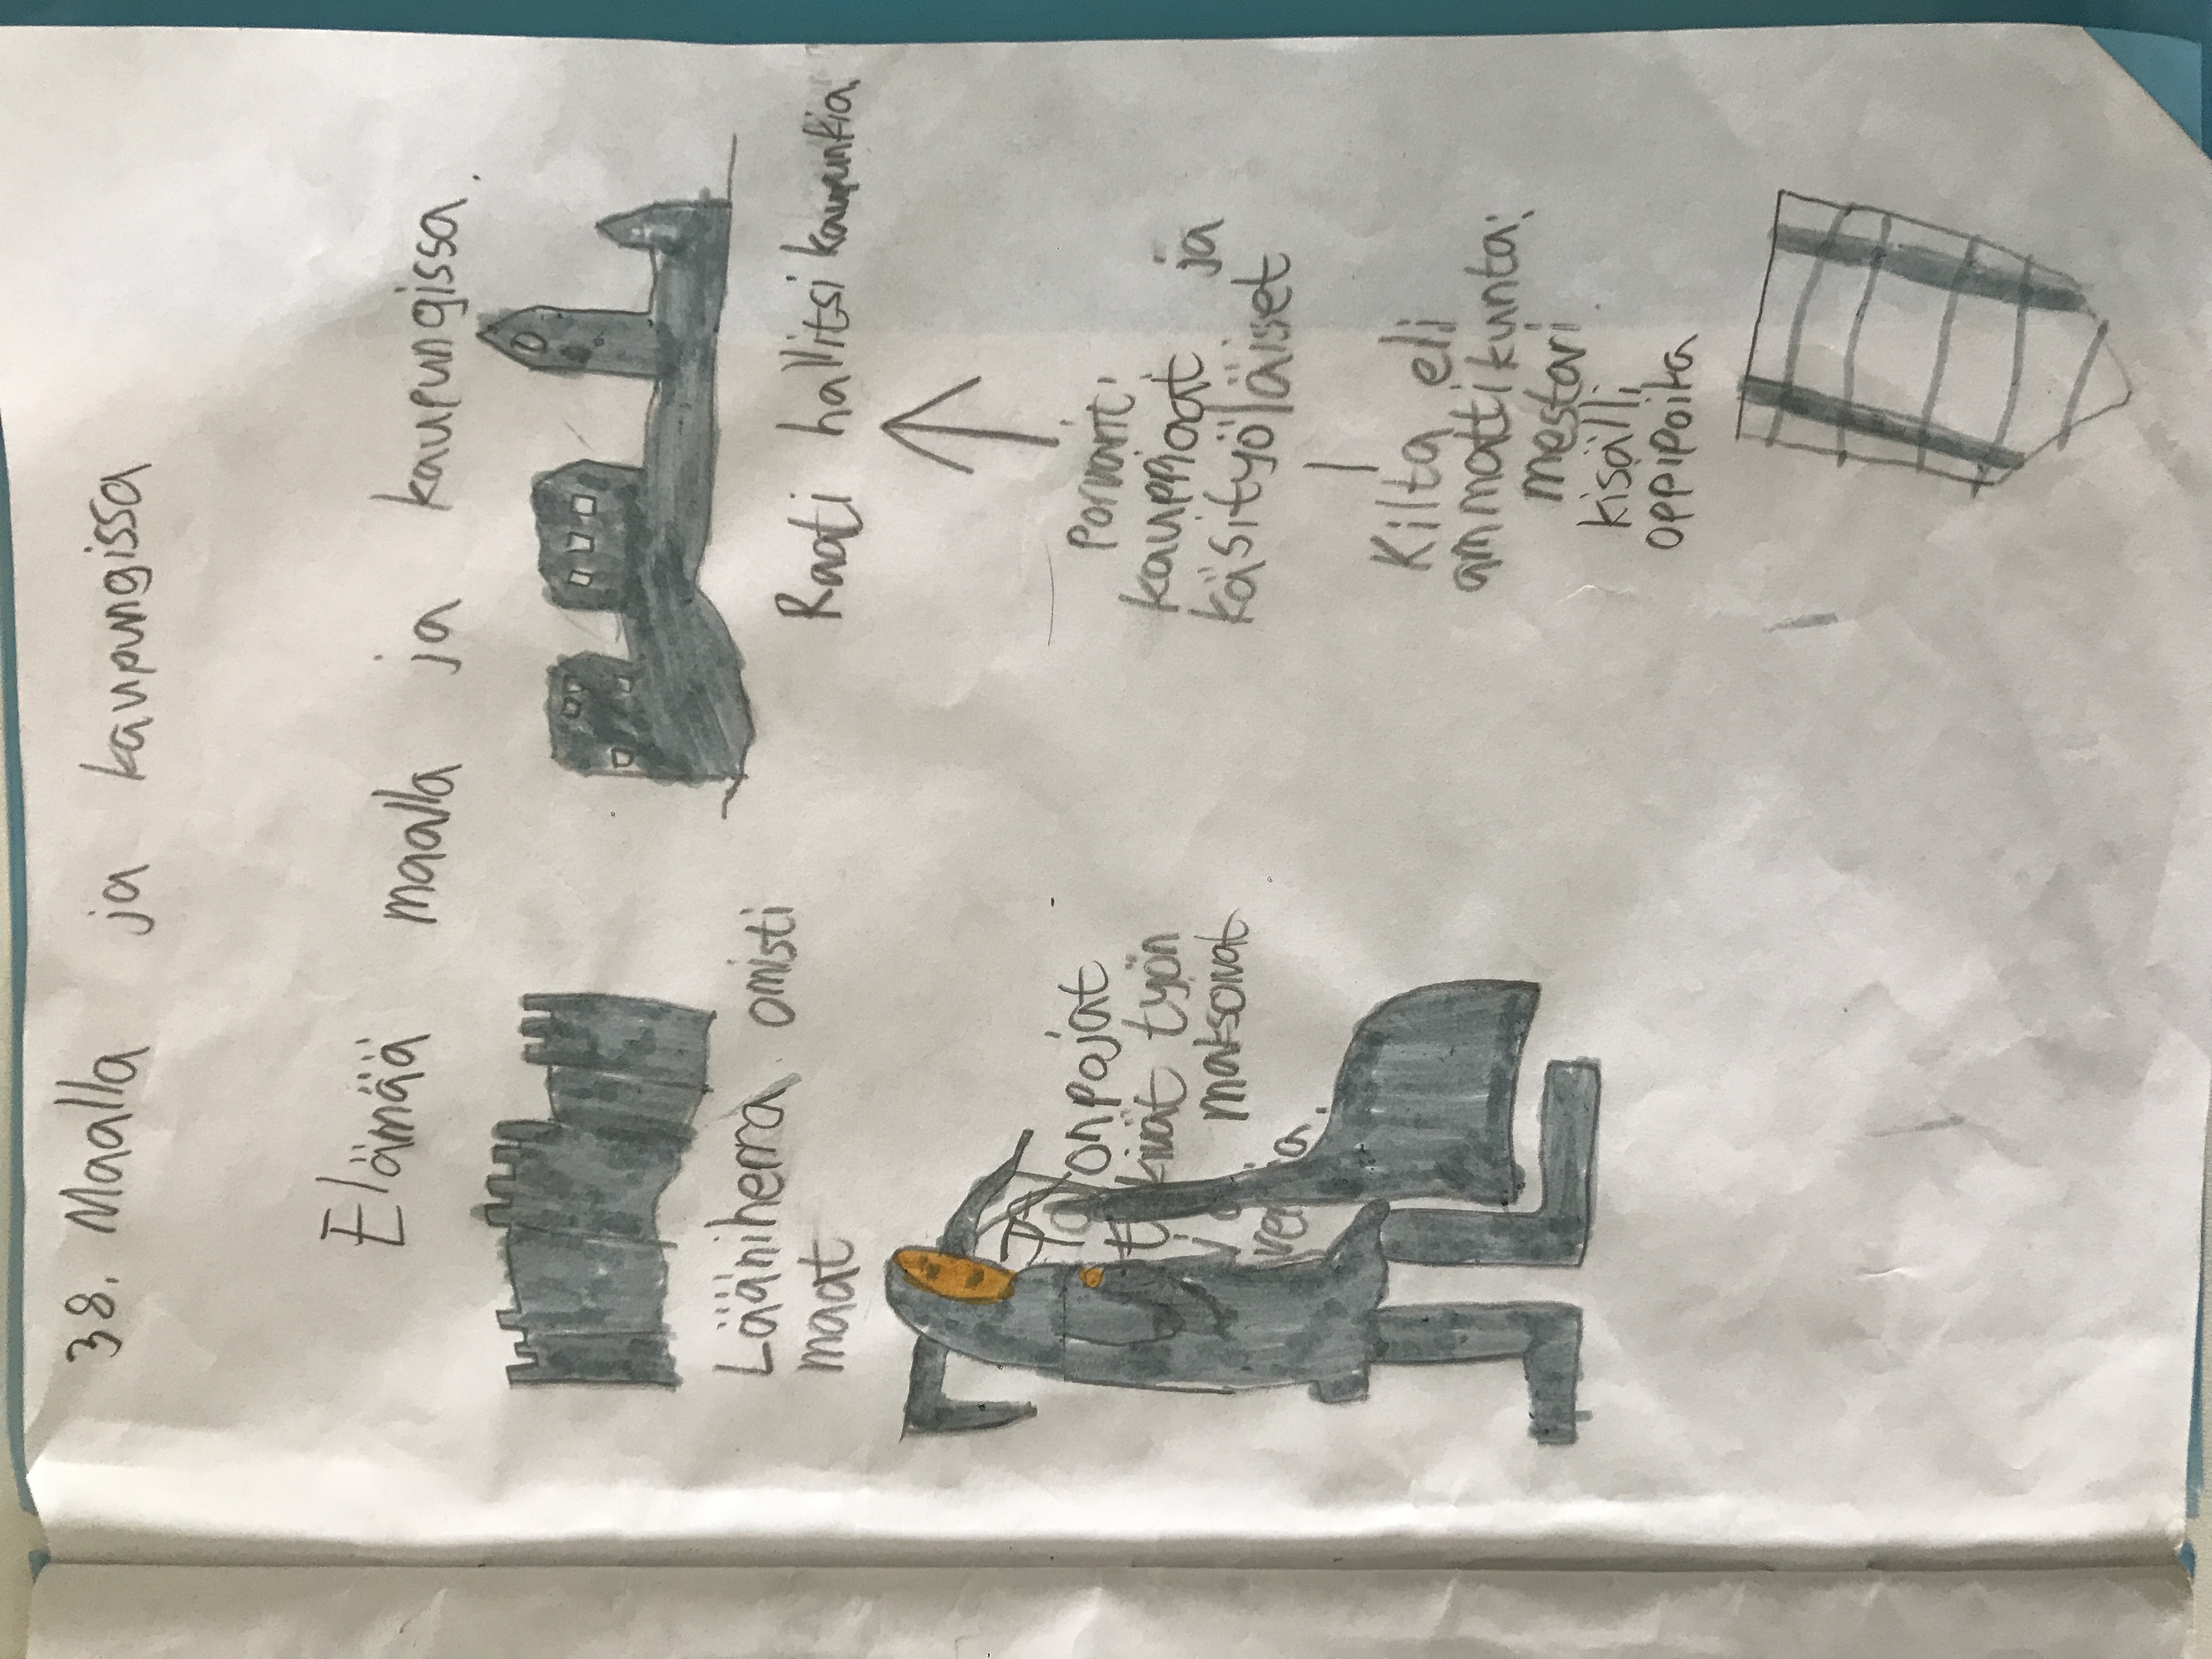 38. Maalla ja kaupungissa
Elämää maalla ja kaupungissa.
Lääniherra omisti
maat
onpojat
työn
maksoivat
Raati hallitsi kaupunkia.
Porvarit:
kauppiaat ja
käsityöläiset
Kilta eli
ammattikunta:
mestari
kisälli
oppipoika